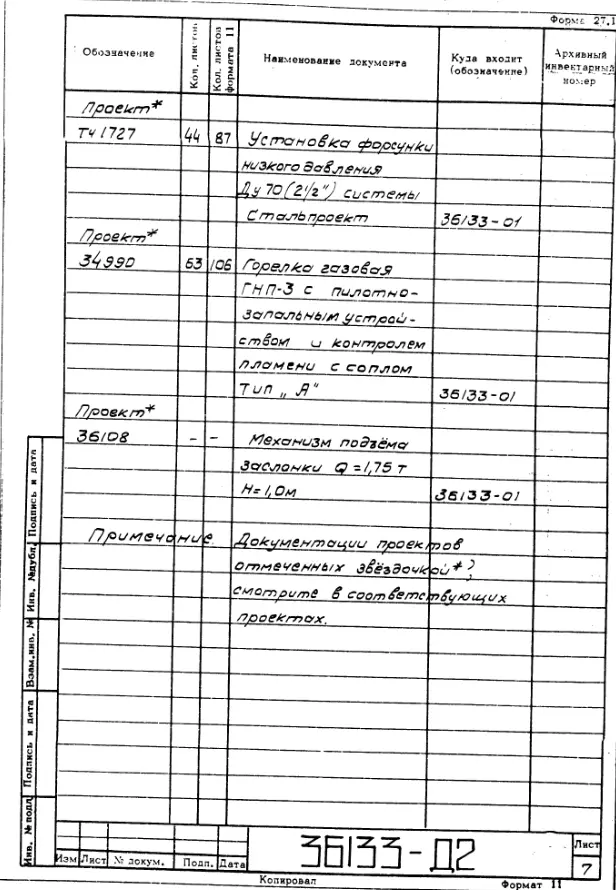 Форма 27.1
Обозначение Кол. листов Кол. листов формата 11 Наименование документа Куда входит (обозначение) Архивный инвентарный номер
Проект*
ТЧ 1727 44 87 Установка форсунки
низкого давления
Ду 70 (2 1/2") системы
Стальпроект 36133-01
Проект*
34990 63 106 Горелка газовая
ГНП-3 с пилотно-
запальным устрой-
ством и контролем
пламени с соплом
Тип „А" 36133-01
Проект*
36108 - - Механизм подъёма
заслонки Q=1,75 т
H=1,0м 36133-01
Примечание. Документации проектов
отмеченных звёздочкой*)
смотрите в соответствующих
проектах.
Подпись и дата
Инв. №дубл.
Взам.инв. №
Подпись и дата
Инв. № подл
Изм Лист № докум. Подп. Дата
36133-Д2
Лист
7
Копировал Формат 11